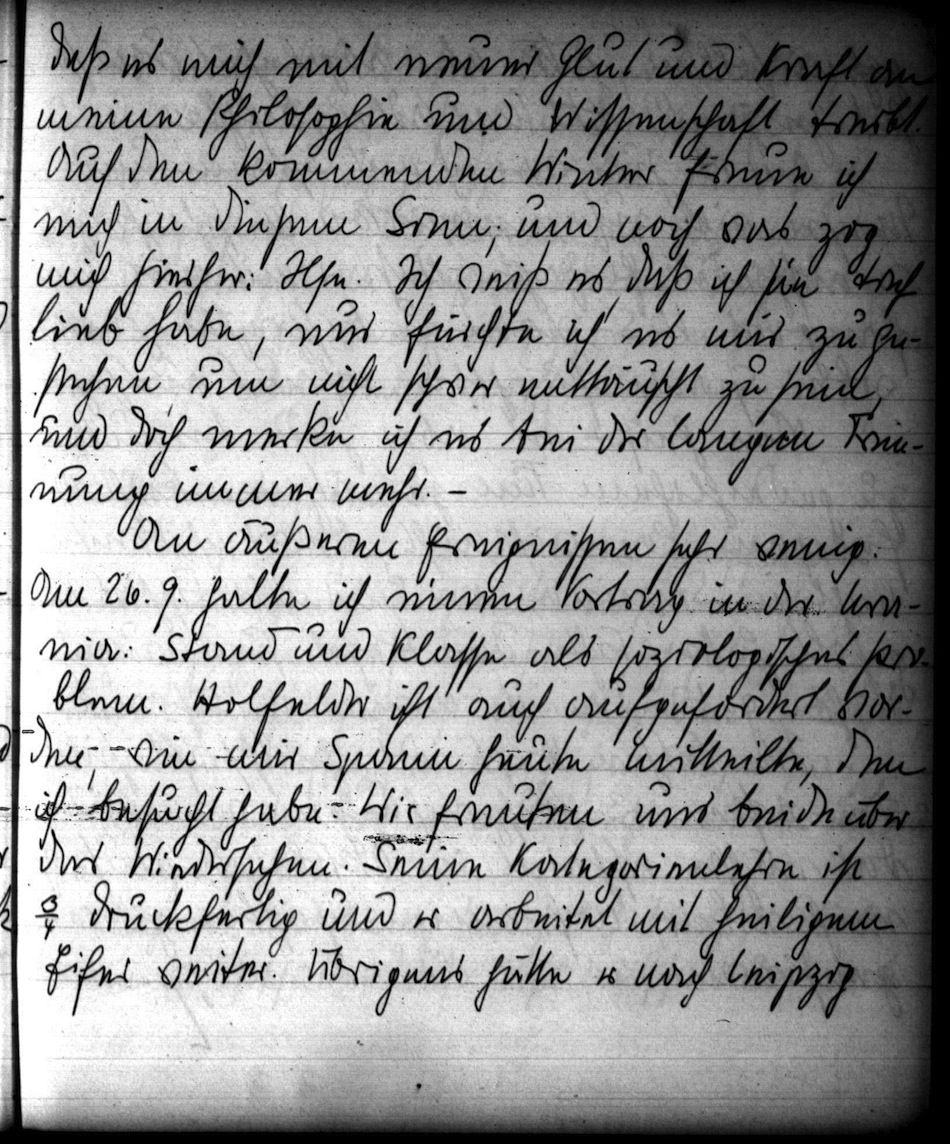 daß es mich mit neuer Glut und Kraft an
meine Philosophie und Wissenschaft treibt.
Auf den kommenden Winter freue ich
mich in diesem Sinn, und noch was zog
mich hierher: Ilse. Ich weiß es, daß ich sie doch
lieb habe, nur fürchte ich es mir zu ge-
stehen um nicht schwer enttäuscht zu sein,
und doch merke ich es bei der langen Tren-
nung immer mehr. –
An äußeren Ereignissen sehr wenig.
Am 26. 9. halte ich einen Vortrag in der Ura-
nia: Stand und Klasse als soziologisches Pro-
blem. Holfelder ist auch aufgefordert wor-
den, wie mir Spann heute mitteilte, den
ich besucht habe. Wir freuten uns beide über
das Wiedersehen. Seine Kategorienlehre ist
3/4 druckfertig und er arbeitet mit heiligem
Eifer weiter. Übrigens hätte er nach Leipzig